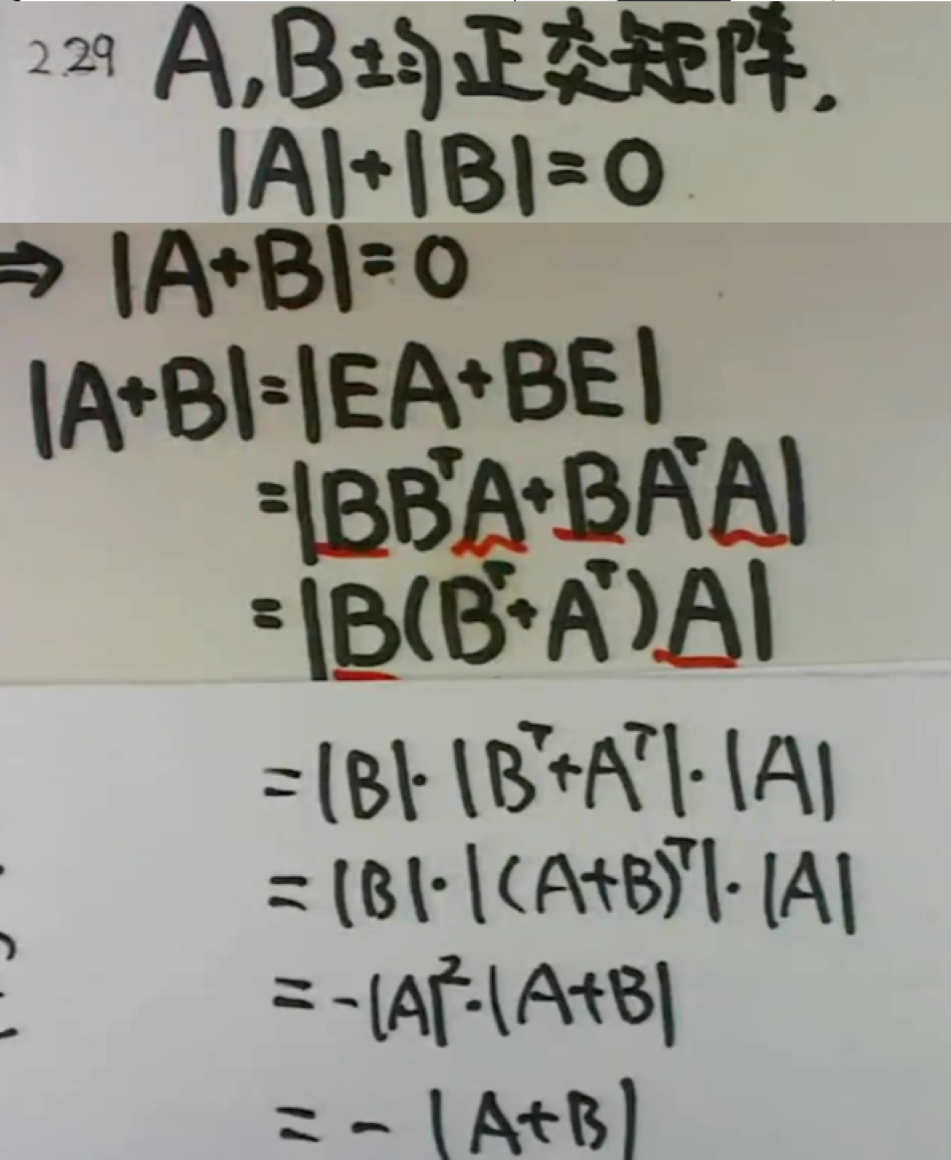 2.29 A,B均正交矩阵.
|A|+|B|=0
⇒ |A+B|=0
|A+B|=|EA+BE|
=|BBᵀA+BAᵀA|
=|B(Bᵀ+Aᵀ)A|
=|B|·|Bᵀ+Aᵀ|·|A|
=|B|·|(A+B)ᵀ|·|A|
=-|A|²·|A+B|
=-|A+B|